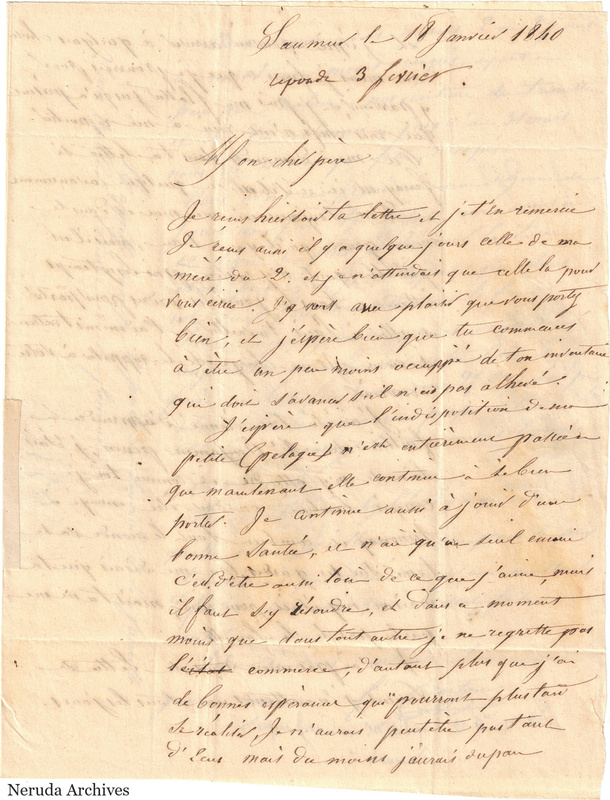 Saumur le 18 Janvier 1840
reponde 3 fevrier.
Mon cher père
Je reçus hier soir ta lettre et je t'en remercie
Je reçus aussi il y a quelque jours celle de ma
mère du 2. et je n'attendais que celle la pour
vous écrire. J'y vois avec plaisir que vous portez
bien, et j'espère bien que tu commences
à être un peu moins occuppé de ton inventaire
qui doit s'avancer s'il n'est pas achevé.
J'espère que l'indisposition de ma
petite Pelagie n'est entièrement passée
que maintenant elle continue à se bien
porter. Je continue aussi à jouir d'une
bonne santé, et n'ai qu'un seul ennui
c'est d'être aussi loin de ce que j'aime, mais
il faut s'y résoudre, et dans ce moment
moins que dans tout autre je ne regrette pas
l'état commerce, d'autant plus que j'ai
de bonnes espérances qui pourront plus tard
se réaliser, Je n'aurais peut etre pas tant
d'Ecus mais du moins j'aurais
Neruda Archives